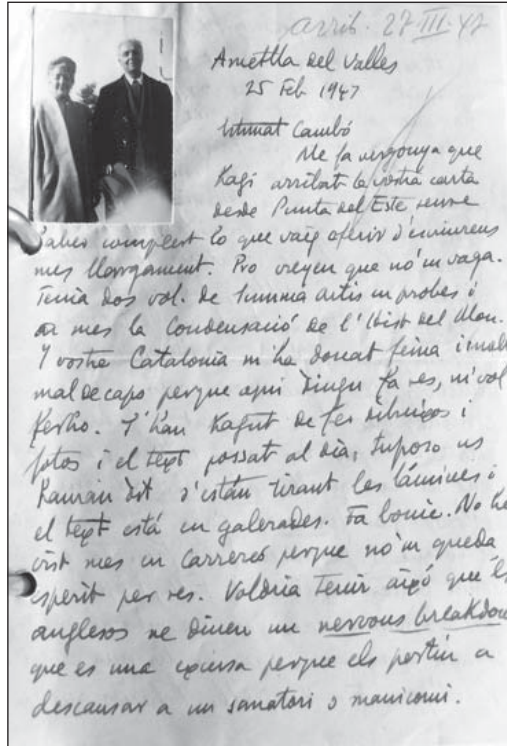 arrib. 27 III-47
Ametlla del Valles
25 Feb 1947
Estimat Cambó
Me fa vergonya que
hagi arribat la vostra carta
desde Punta del Este sense
haber complert lo que vaig oferir d'escriureus
mes llargament. Pro creyeu que nò'm vaga.
Tenia dos vol. de Summa Artis en probes i
a mes la Condensació de l'Hist del Mon.
Y vostra Catalonia m'ha donat feina i molts
mal de caps perque aqui dingu fa res, ni vol
ferho. S'han hagut de fer dibuixos i
fotos i el text possat al dia, suposo us
hauran dit s'están tirant les lámines i
el text está en galerades. Fa bonic. No he
vist mes en Carreras perque nò'm queda
esperit per res. Voldria tenir aixó que els
anglesos ne diuen un nervous breakdown
que es una excusa perque els portin a
descansar a un sanatori o manicomi.